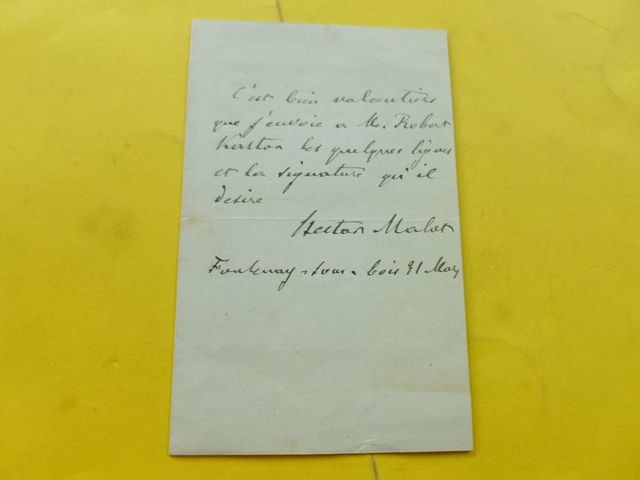 C'est bien volontiers
que j'envoie a Mr. Robert
Kaston les quelques lignes
et la signature qu'il
desire
Hector Malot
Fontenay-sous-bois 31 May